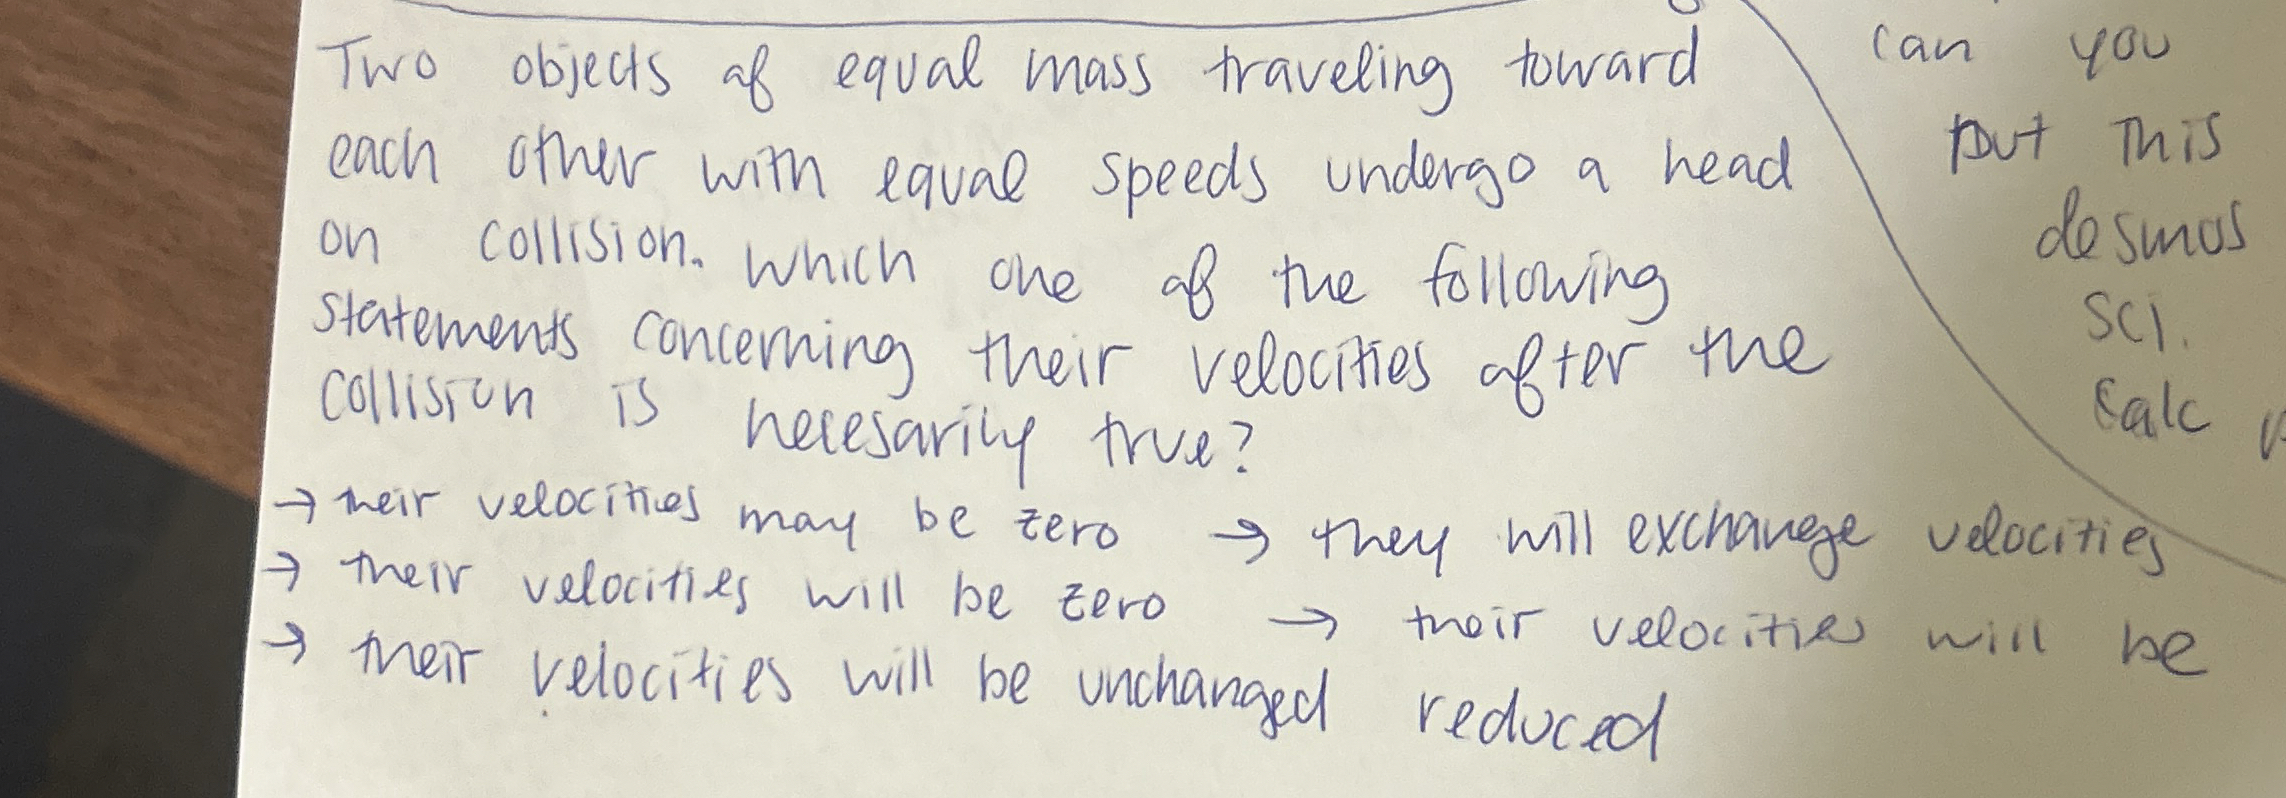 Two objects of equal mass traveling toward
each other with equal speeds undergo a head
on collision. Which one of the following
statements concerning their velocities after the
collision is necesarily true?
→ their velocities may be zero → they will exchange velocities
→ their velocities will be zero → their velocities will be
→ their velocities will be unchanged reduced
can you
put this
desmos
sci.
calc